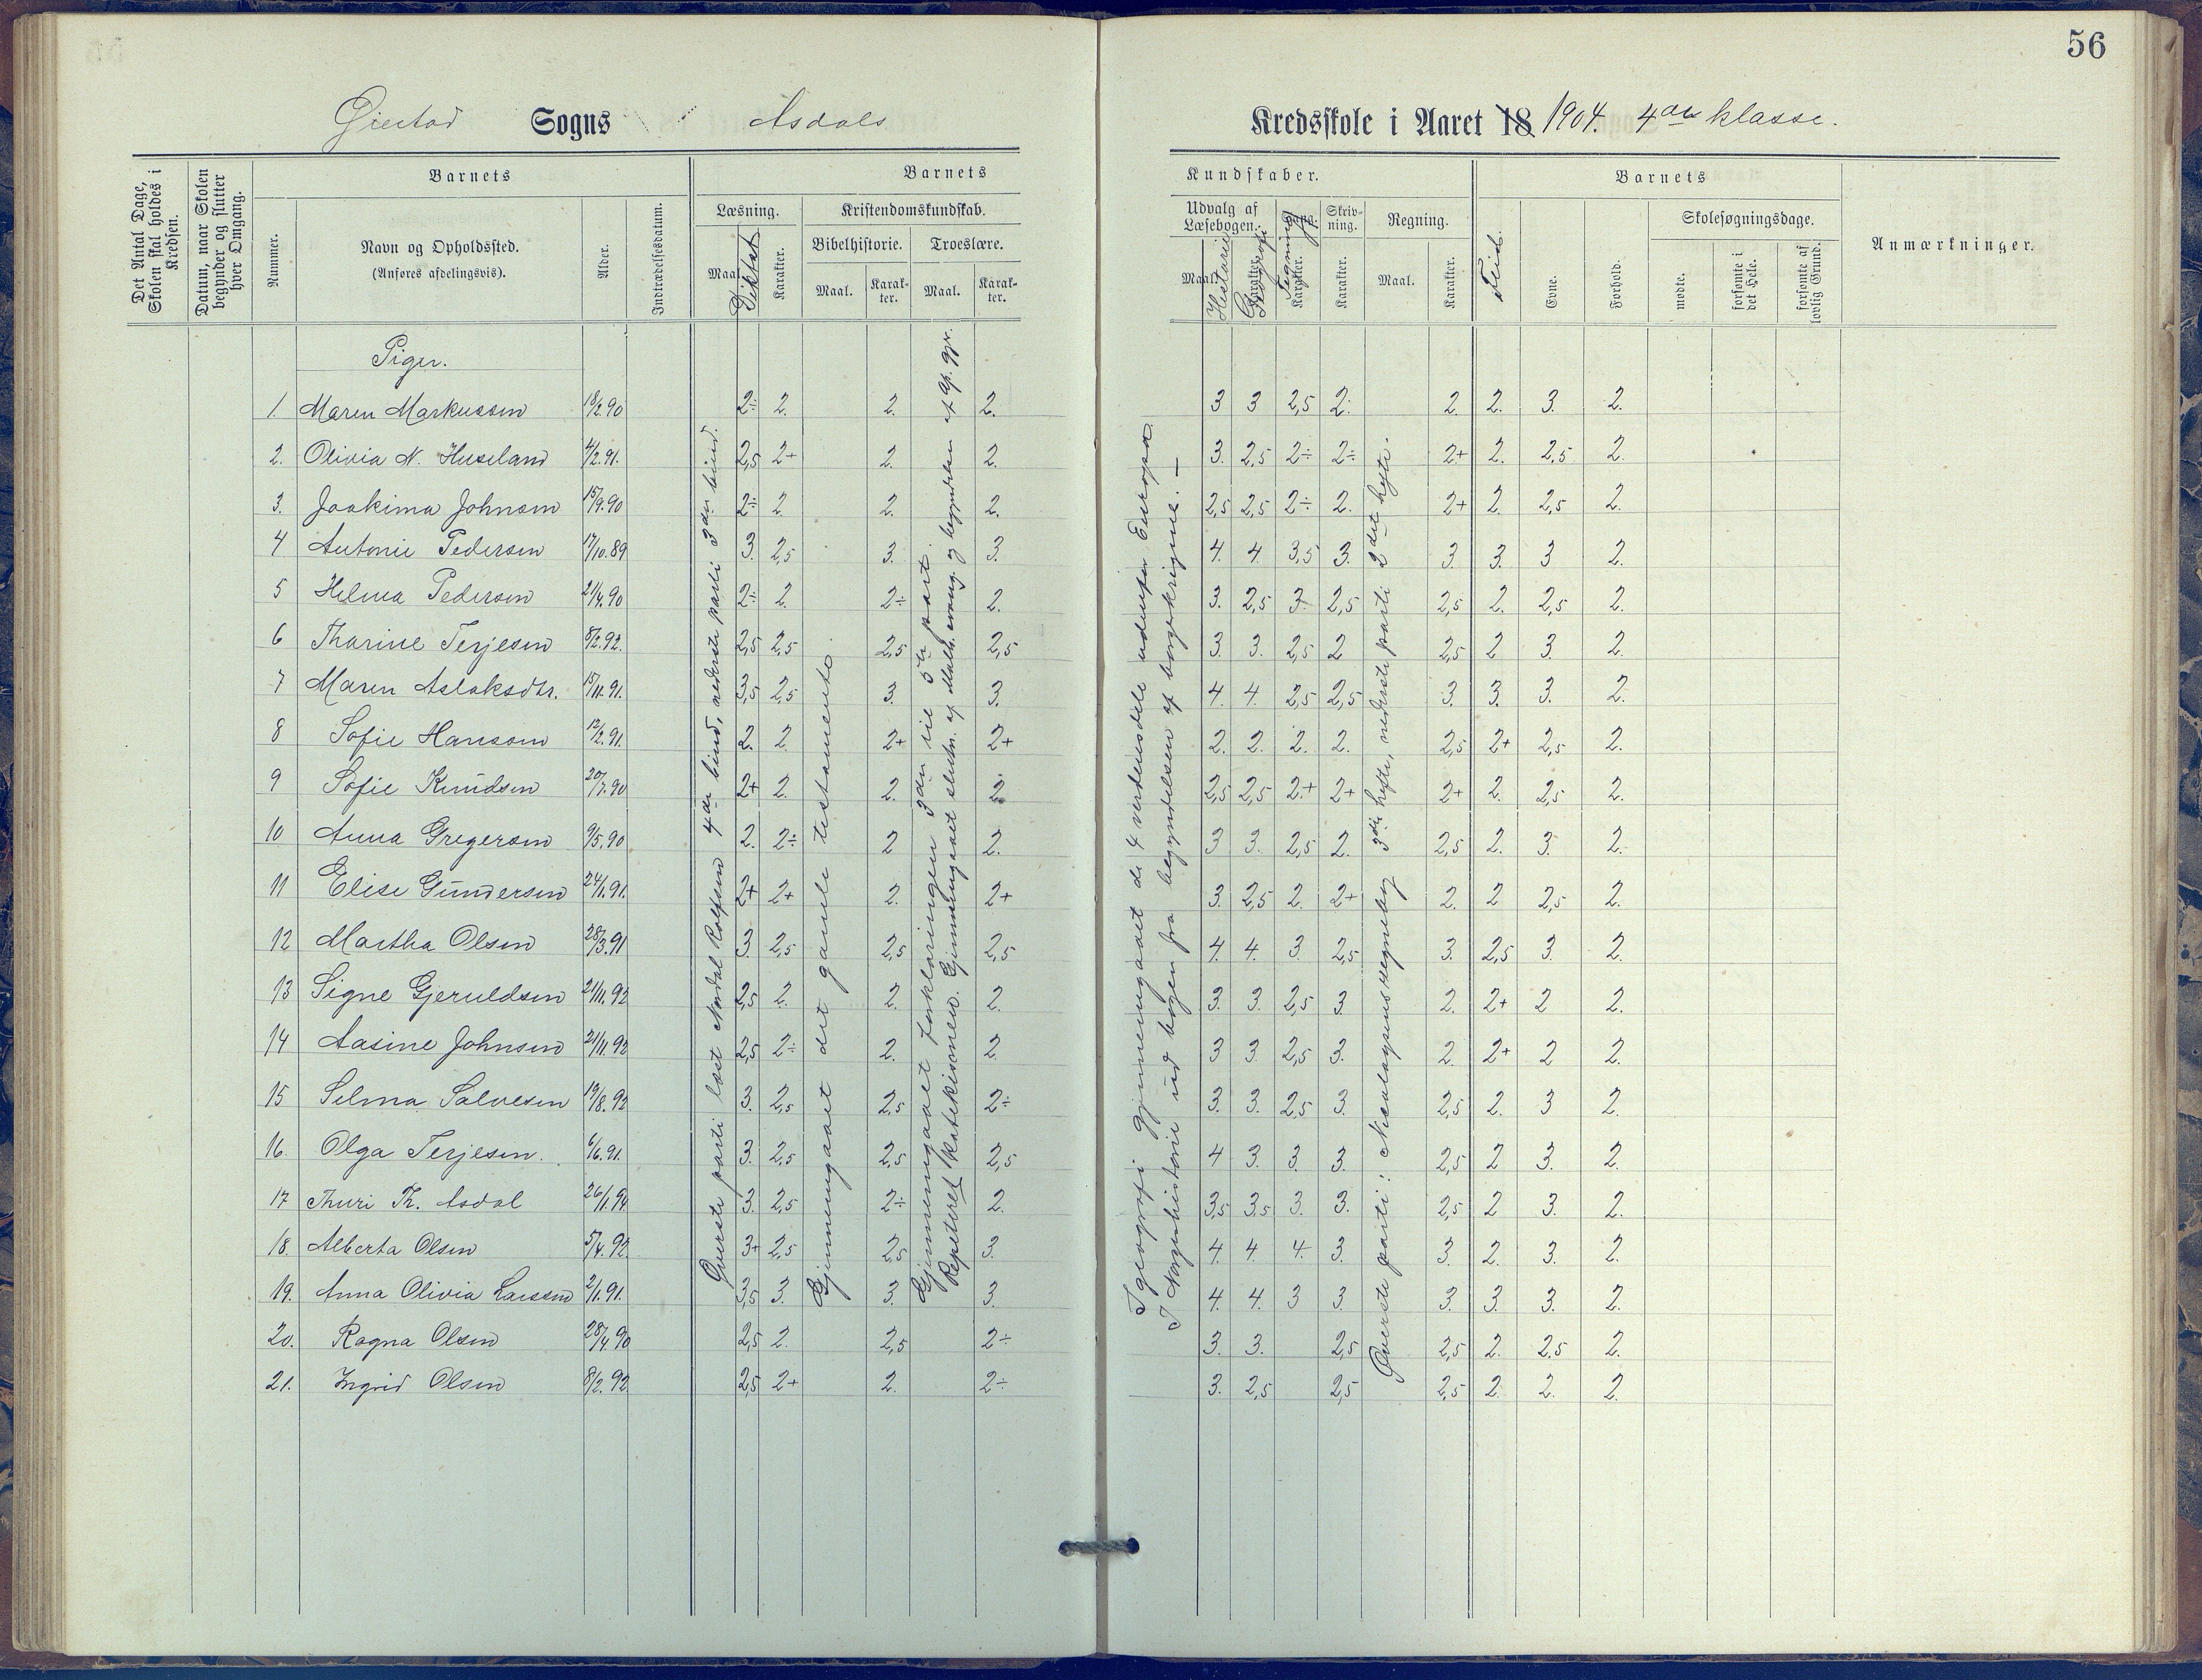 56
Gjestad Sogns Asdals Kredsskole i Aaret 18 1904. 4de klasse.
Det Antal Dage, Skolen skal holdes i Kredsen.
Datum, naar Skolen begynder og slutter hver Omgang.
Barnets
Nummer.
Navn og Opholdssted.
(Anføres afdelingsvis).
Alder.
Indtrædelsesdatum.
Barnets Kundskaber.
Læsning.
Maal.
Diktat
Karakter.
Kristendomskundskab.
Bibelhistorie.
Maal.
Karakter.
Troeslære.
Maal.
Karakter.
Udvalg af Læsebogen.
Maal.
Historie
Karakter.
Geografi
Sang.
Tegning
Karakter.
Skrivning.
Karakter.
Regning.
Maal.
Karakter.
Barnets
Flid.
Evne.
Forhold.
Skolesøgningsdage.
mødte.
forsømte i det Hele.
forsømte af lovlig Grund.
Anmærkninger.
Piger.
1. Maren Markussen 18/2.90 2÷ 2. 2. 2. 3 3 2,5 2. 2. 2. 3. 2.
2. Olivia N. Huseland 4/2.91. 2,5 2+ 2. 2. 3. 2,5 2÷ 2÷ 2+ 2. 2,5 2.
3. Joakima Johnsen 15/9.90 2÷ 2. 2. 2. 2,5 2,5 2÷ 2. 2+ 2. 2,5 2.
4 Antonie Pedersen 17/10.89 3. 2,5 3. 3. 4. 4 3,5 3. 3. 3. 3 2.
5 Helma Pedersen 21/4.90 2÷ 2. 2÷ 2. 3. 2,5 3. 2,5 2,5 2. 2,5 2.
6 Tharine Terjesen 8/2.92. 2,5 2,5 2,5 2,5 3. 3. 2,5 2 2,5 2 3. 2.
7 Maren Aslaksdtr. 15/11.91. 3,5 2,5 3. 3. 4. 4. 2,5 2,5 3. 3. 3. 2.
8 Sofie Hansen 12/2.91. 2. 2. 2+ 2+ 2. 2. 2. 2. 2,5 2+ 2,5 2.
9 Sofie Knudsen 20/7.90 2+ 2. 2. 2. 2,5 2,5 2+ 2+ 2+ 2. 2,5 2.
10 Anna Gregersen 9/5.90 2. 2÷ 2 2. 3 3. 2,5 2. 2,5 2. 3. 2.
11 Elise Gundersen 24/1.91. 2+ 2+ 2. 2+ 3. 2,5 2. 2+ 2. 2 2,5 2.
12 Martha Olsen 28/3.91 3. 2,5 2,5 2,5 4. 4. 3. 2,5 3. 2,5 3. 2.
13 Signe Gjeruldsen 21/11.92 2,5 2. 2. 2. 3. 3. 2,5 3 2. 2+ 2 2.
14 Aasine Johnsen 21/11.92 2,5 2÷ 2. 2. 3 3. 2,5 3. 2. 2+ 2 2.
15 Selma Salvesen 19/8.92 3. 2,5 2,5 2÷ 3. 3. 2,5 3. 2,5 2. 3 2.
16 Olga Terjesen. 6/6.91. 3. 2,5 2,5 2,5 4 3. 3. 3. 2,5 2 3. 2.
17 Thuri Th. Asdal 26/1.94 3. 2,5 2÷ 2. 3,5 3,5 3. 3. 2,5 2 3. 2.
18. Alberta Olsen 5/4.92 3+ 2,5 2,5 3. 4. 4. 4. 3. 3. 2. 3. 2.
19. Anna Olivia Larssen 2/1.91. 3,5 3. 3. 3. 4. 4. 3 3. 3. 3. 3. 2.
20. Ragna Olsen 28/4.90 2,5 2. 2,5 2÷ 3. 3. 2,5 2,5 2. 2,5 2.
21. Ingrid Olsen 8/2.92 2,5 2+ 2. 2÷ 3. 2,5 2,5 2,5 2. 2. 2.
Øverste parti læst Nordal Rolfsen 4de bind, nederste parti 3die bind.
Gjennemgaaet det gamle testamente.
Gjennemgaaet forklaringen 3die til 5te part.
Repeteret katekismen. Gjennemgaaet slutn. af Math. evang. og begyndelsen af Ap. gjr.
I geografi gjennemgaaet de 4 verdensdele udenfor Europa.
I Norgeshistorie ud bogen fra begyndelsen af borgerkrigene. —
Øverste parti: Nicolaysens regnebog 3die hefte, nederste parti 2det hefte.